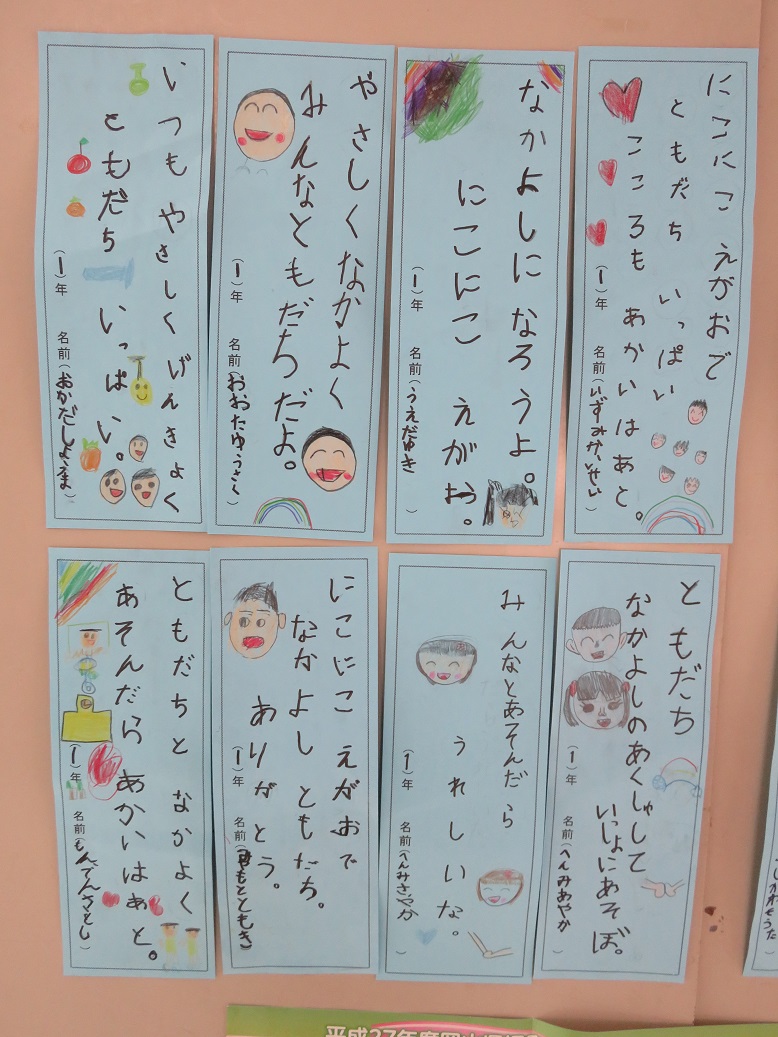 にこにこ えがおで
ともだち いっぱい
こころも あかいはあと。
(1)年 名前(いずみかいせい)
なかよしに なろうよ。
にこにこ えがお。
(1)年 名前(うえだゆき )
やさしくなかよく
みんなともだちだよ。
(1)年 名前(おおたゆうさく)
いつも やさしく げんきよく
ともだち いっぱい。
(1)年 名前(おかだしょうま)
ともだち
なかよしのあくしゅして
いっしょにあそぼ。
(1)年 名前(へんみあやか )
みんなとあそんだら
うれしいな。
(1)年 名前(へんみさやか )
にこにこ えがおで
なかよし ともだち。
ありがとう。
(1)年 名前( もとともき)
ともだちと なかよく
あそんだら あかいはあと。
(1)年 名前(もんでんさとし)
平成27年度